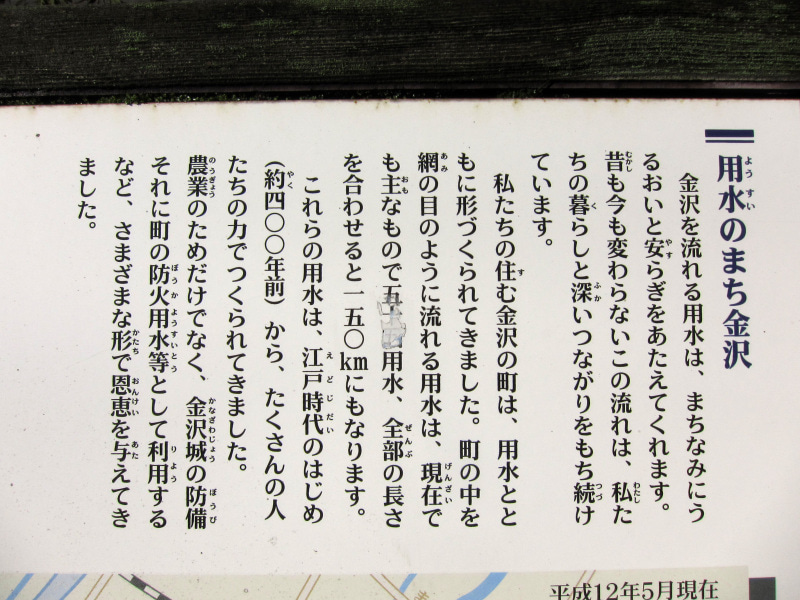 用水のまち金沢
金沢を流れる用水は、まちなみにう
るおいと安らぎをあたえてくれます。
昔も今も変わらないこの流れは、私た
ちの暮らしと深いつながりをもち続け
ています。
私たちの住む金沢の町は、用水とと
もに形づくられてきました。町の中を
網の目のように流れる用水は、現在で
も主なもので五 用水、全部の長さ
を合わせると一五〇kmにもなります。
これらの用水は、江戸時代のはじめ
（約四〇〇年前）から、たくさんの人
たちの力でつくられてきました。
農業のためだけでなく、金沢城の防備
それに町の防火用水等として利用する
など、さまざまな形で恩恵を与えてき
ました。
平成12年5月現在